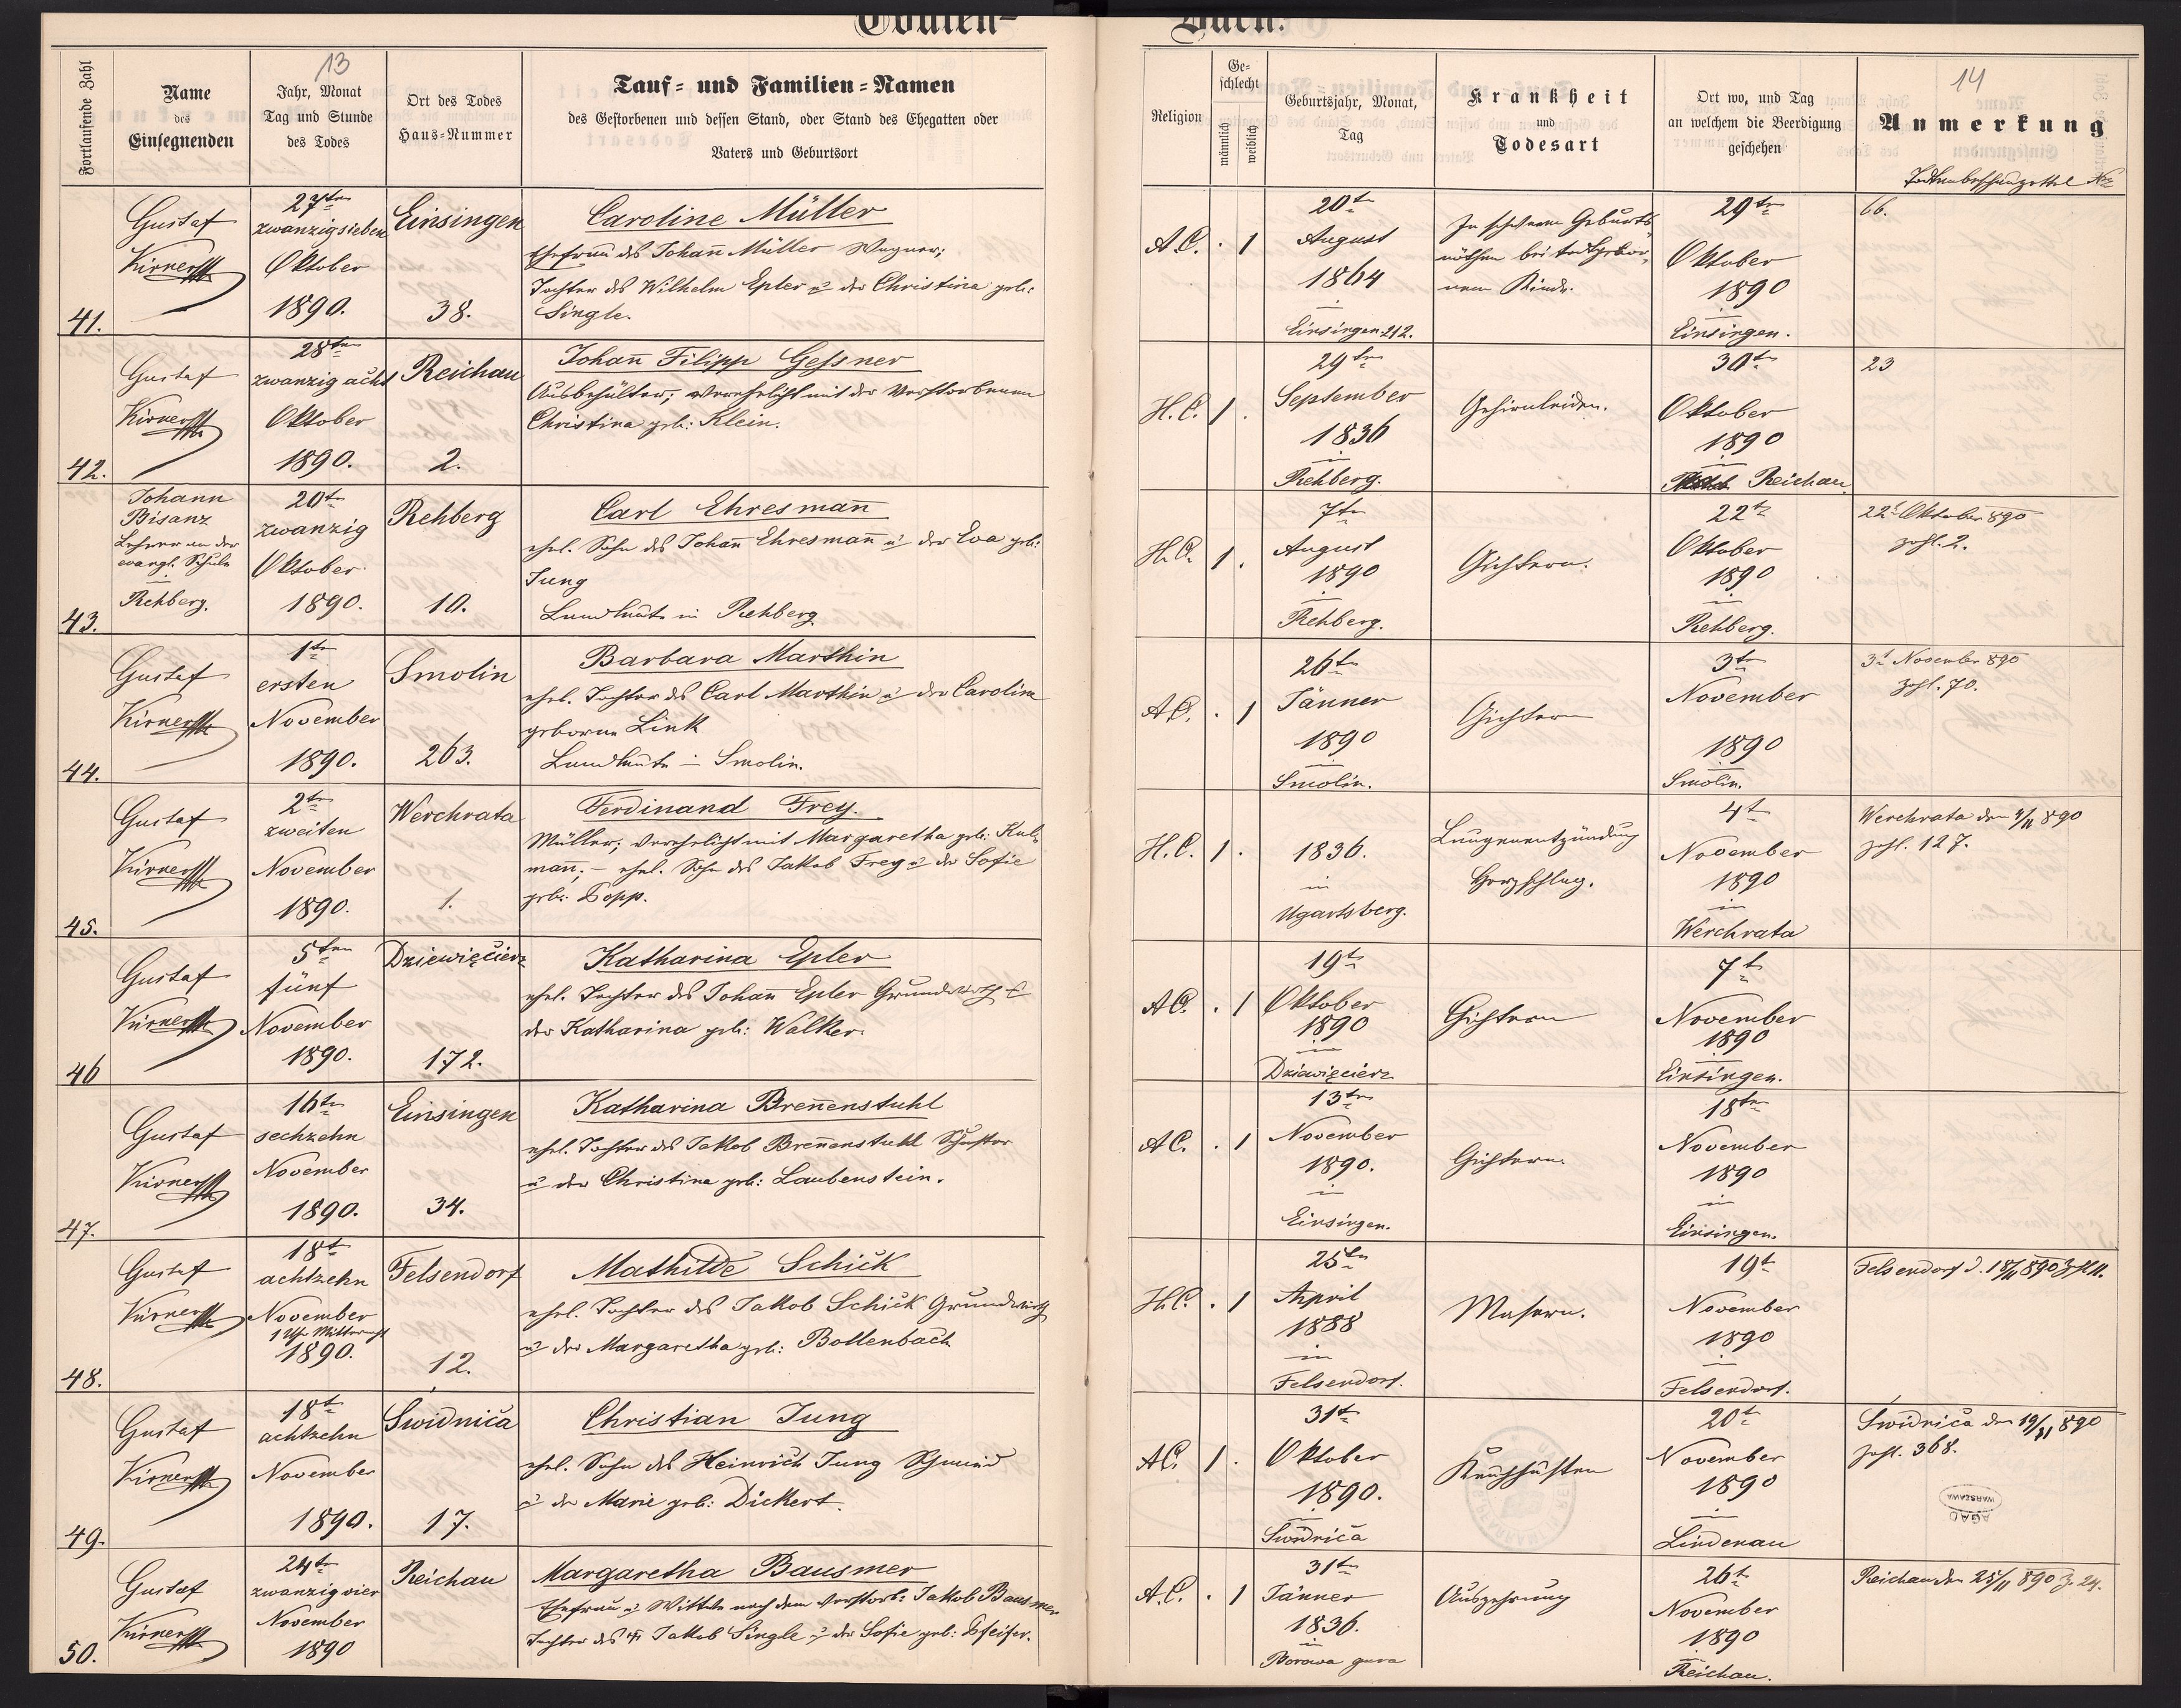 Todten-
Buch.
13
14
Fortlaufende Zahl
Name
des
Einsegnenden
Jahr, Monat
Tag und Stunde
des Todes
Ort des Todes
Haus-Nummer
Tauf- und Familien-Namen
des Gestorbenen und dessen Stand, oder Stand des Ehegatten oder
Vaters und Geburtsort
Religion
Ge-
schlecht
männlich
weiblich
Geburtsjahr, Monat,
Tag
Krankheit
und
Todesart
Ort wo, und Tag
an welchem die Beerdigung
geschehen
Anmerkung
Todtenbeschauzettel No
41.
Gustaf
Kirner
27ten
zwanzigsieben
Oktober
1890.
Einsingen
38.
Caroline Müller
Ehefrau des Johan̄ Müller Wagner;
Tochter des Wilhelm Epler u der Christina geb:
Single.
A.C. . 1
20t
August
1864
Einsingen 212.
In schweren Geburts
nöthen bei todtgebor
nem Kinde.
29t
Oktober
1890
Einsingen.
66.
42.
Gustaf
Kirner
28ten
zwanzig acht
Oktober
1890.
Reichau
2.
Johan̄ Filipp Gessner
Ausbehälter; verehelicht mit der verstorbenen
Christina geb: Klein.
H.C. 1 .
29ten
September
1836
in
Rehberg.
Gehirnleiden.
30t
Oktober
1890
in
Reichau
23
43.
Johann
Bisanz
Lehrer an der
evangl. Schule
in
Rehberg.
20t
zwanzig
Oktober
1890.
Rehberg
10.
Carl Ehresman̄
ehel. Sohn des Johan̄ Ehresman̄ u der Eva geb:
Jung
Landleute in Rehberg
H.C. 1 .
7ten
August
1890
in
Rehberg.
Gichtern.
22t
Oktober
1890
in
Rehberg.
22t Oktober 890
zhl. 2.
44.
Gustaf
Kirner
1t
ersten
November
1890.
Smolin
263.
Barbara Marthin
ehel. Tochter des Carl Marthin u der Carolina
geborne Link
Landleute in Smolin.
A.C. . 1
26ten
Jänner
1890
in
Smolin.
Gichtern
3t
November
1890
in
Smolin.
3t November 890
zhl. 70.
45.
Gustaf
Kirner
2t
zweiten
November
1890.
Werchrata
1.
Ferdinand Frey.
Müller; verehelicht mit Margaretha geb: Kul-
man̄; – ehel. Sohn des Jakob Frey u der Sofie
geb: Popp.
H.C. 1 .
1836.
in
Ugartsberg.
Lungenentzündung
Herzschlag.
4t
November
1890
in
Werchrata
Werchrata den 3/11 890
zhl. 127.
46
Gustaf
Kirner
5ten
fünf
November
1890.
Dziewięcierz
172.
Katharina Epler
ehel. Tochter des Johan̄ Epler Grundwirth u
der Katharina geb: Walker.
A.C. . 1
19t
Oktober
1890
in
Dziewięcierz
Gichtern
7t
November
1890
in
Einsingen.
47.
Gustaf
Kirner
16ten
sechzehn
November
1890.
Einsingen
34.
Katharina Bren̄enstuhl
ehel. Tochter des Jakob Bren̄enstuhl Schuster
u der Christina geb: Laubenstein.
A.C. . 1
13ten
November
1890.
in
Einsingen.
Gichtern.
18ten
November
1890
in
Einsingen.
48.
Gustaf
Kirner
18t
achtzehn
November
1 Uhr Mitternacht
1890.
Felsendorf
12.
Mathilde Schick
ehel. Tochter des Jakob Schick Grundwirth
u der Margaretha geb: Bollenbach
H.C. . 1
25ten
April
1888
in
Felsendorf.
Masern.
19t
November
1890
in
Felsendorf.
Felsendorf d. 18/11 890 Zhl 11.
49.
Gustaf
Kirner
18t
achtzehn
November
1890.
Świdnica
17.
Christian Jung
ehel. Sohn des Heinrich Jung Schmied
u der Marie geb: Dickert.
A.C. 1 .
31t
Oktober
1890.
Świdnica
Keuchhusten
20t
November
1890
in
Lindenau
Świdnica den 19/11 890
zhl. 368.
AGAD
WARSZAWA
50.
Gustaf
Kirner
24ten
zwanzig vier
November
1890
Reichau
Margaretha Bausmer
Ehefrau u Wittwe nach dem verstorb: Jakob Bausmer
Tochter des Jakob Single u der Sofie geb: Pfeifer.
A.C. . 1
31ten
Jänner
1836.
in
Borowa gura
Auszehrung
26t
November
1890
in
Reichau.
Reichau den 25/11 890 Z. 24.